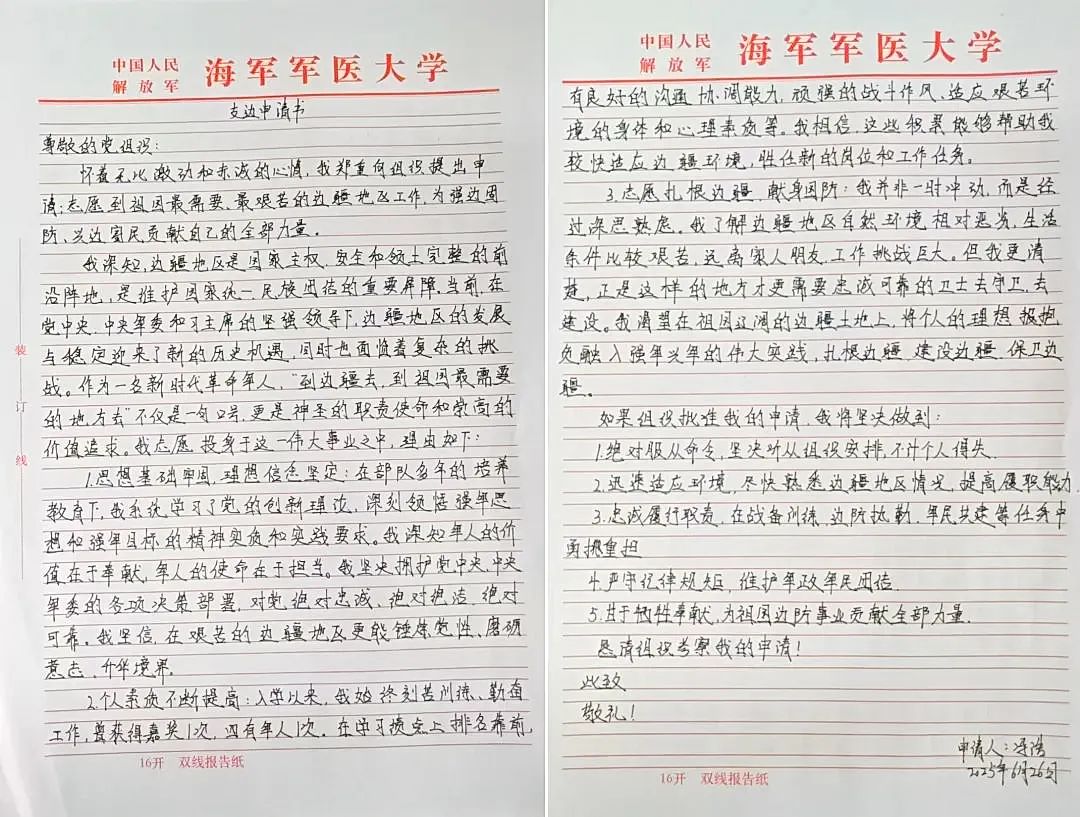 中国人民
解放军
海军军医大学
支边申请书
尊敬的党组织:
怀着无比激动和赤诚的心情,我郑重向组织提出申
请:志愿到祖国最需要、最艰苦的边疆地区工作,为强边固
防、兴边富民贡献自己的全部力量。
我深知,边疆地区是国家主权、安全和领土完整的前
沿阵地,是维护国家统一、民族团结的重要屏障。当前,在
党中央、中央军委和习主席的坚强领导下,边疆地区的发展
与稳定迎来了新的历史机遇,同时也面临着复杂的挑
战。作为一名新时代革命军人,“到边疆去,到祖国最需要
的地方去”不仅是一句口号,更是神圣的职责使命和崇高的
价值追求。我志愿投身于这一伟大事业之中,理由如下:
1.思想基础牢固,理想信念坚定:在部队多年的培养
教育下,我系统学习了党的创新理论,深刻领悟强军思
想和强军目标的精神实质和实践要求。我深知军人的价
值在于奉献,军人的使命在于担当。我坚决拥护党中央、中央
军委的各项决策部署,对党绝对忠诚、绝对纯洁、绝对
可靠。我坚信,在艰苦的边疆地区更能锤炼党性、磨砺
意志、升华境界。
2.个人素质不断提高:入学以来,我始终刻苦训练、勤奋
工作,曾获得嘉奖1次,四有军人1次。在学习绩点上排名靠前,
16开 双线报告纸
装
订
线
中国人民
解放军
海军军医大学
有良好的沟通协调能力,顽强的战斗作风、适应艰苦环
境的身体和心理素质等。我相信,这些积累能够帮助我
较快适应边疆环境,胜任新的岗位和工作任务。
3.志愿扎根边疆,献身国防:我并非一时冲动,而是经
过深思熟虑。我了解边疆地区自然环境相对恶劣,生活
条件比较艰苦,远离家人朋友,工作挑战巨大。但我更清
楚,正是这样的地方才更需要忠诚可靠的卫士去守卫,去
建设。我渴望在祖国辽阔的边疆土地上,将个人的理想抱
负融入强军兴军的伟大实践,扎根边疆、建设边疆、保卫边
疆。
如果组织批准我的申请,我将坚决做到:
1.绝对服从命令,坚决听从组织安排,不计个人得失.
2.迅速适应环境,尽快熟悉边疆地区情况,提高履职能力.
3.忠诚履行职责,在战备训练、边防执勤、军民共建等任务中
勇挑重担
4.严守纪律规矩,维护军政军民团结
5.甘于牺牲奉献,为祖国边防事业贡献全部力量.
恳请组织考察我的申请!
此致
敬礼!
申请人:冯浩
2025年6月26日
16开 双线报告纸